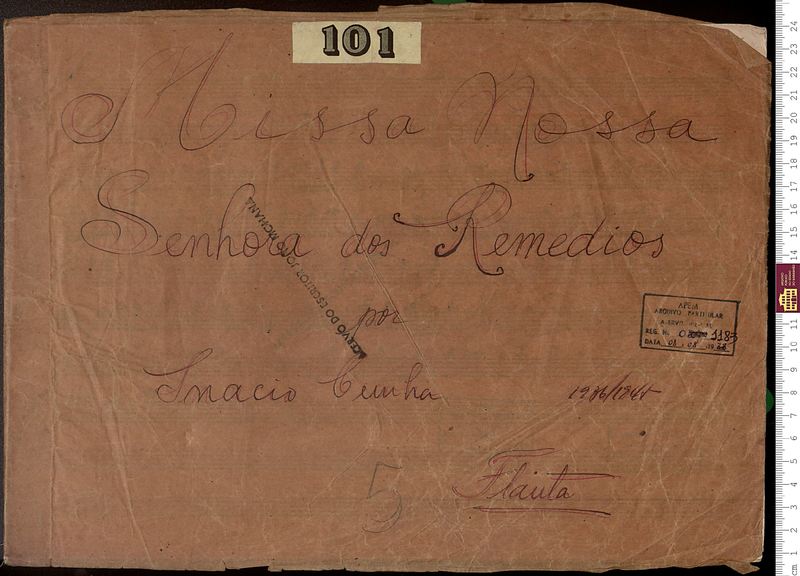 101
Missa Nossa
Senhora dos Remedios
ACERVO DO ESCRITOR JOÃO MOHANA
por
APEM
ARQUIVO PARTICULAR
REG. N. 1183
DATA 08
Inacio Cunha
5
Flauta
cm 1 2 3 4 5 6 7 8 9 10 11 14 15 16 17 18 19 20 21 22 23 24